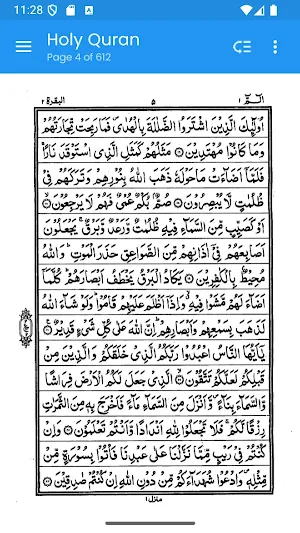 11:28
Holy Quran
Page 4 of 612
الٓمّٓ ١
٥
البقرة ٢
اُولٰٓئِكَ الَّذِيْنَ اشْتَرَوُا الضَّلٰلَةَ بِالْهُدٰى فَمَا رَبِحَتْ تِّجَارَتُهُمْ
وَمَا كَانُوْا مُهْتَدِيْنَ ۝ مَثَلُهُمْ كَمَثَلِ الَّذِى اسْتَوْقَدَ نَارًا
فَلَمَّآ اَضَآءَتْ مَا حَوْلَهٗ ذَهَبَ اللّٰهُ بِنُوْرِهِمْ وَتَرَكَهُمْ فِىْ
ظُلُمٰتٍ لَّا يُبْصِرُوْنَ ۝ صُمٌّۢ بُكْمٌ عُمْىٌ فَهُمْ لَا يَرْجِعُوْنَ ۝
اَوْ كَصَيِّبٍ مِّنَ السَّمَآءِ فِيْهِ ظُلُمٰتٌ وَّرَعْدٌ وَّبَرْقٌ يَجْعَلُوْنَ
اَصَابِعَهُمْ فِىْٓ اٰذَانِهِمْ مِّنَ الصَّوَاعِقِ حَذَرَ الْمَوْتِ ؕ وَاللّٰهُ
مُحِيْطٌۢ بِالْكٰفِرِيْنَ ۝ يَكَادُ الْبَرْقُ يَخْطَفُ اَبْصَارَهُمْ ؕ كُلَّمَآ
اَضَآءَ لَهُمْ مَّشَوْا فِيْهِ ۙ وَاِذَآ اَظْلَمَ عَلَيْهِمْ قَامُوْا ؕ وَلَوْ شَآءَ اللّٰهُ
لَذَهَبَ بِسَمْعِهِمْ وَاَبْصَارِهِمْ ؕ اِنَّ اللّٰهَ عَلٰى كُلِّ شَىْءٍ قَدِيْرٌ ۝
يٰٓاَيُّهَا النَّاسُ اعْبُدُوْا رَبَّكُمُ الَّذِىْ خَلَقَكُمْ وَالَّذِيْنَ مِنْ
قَبْلِكُمْ لَعَلَّكُمْ تَتَّقُوْنَ ۝ الَّذِىْ جَعَلَ لَكُمُ الْاَرْضَ فِرَاشًا
وَّالسَّمَآءَ بِنَآءً ۪ وَّاَنْزَلَ مِنَ السَّمَآءِ مَآءً فَاَخْرَجَ بِهٖ مِنَ الثَّمَرٰتِ
رِزْقًا لَّكُمْ ۚ فَلَا تَجْعَلُوْا لِلّٰهِ اَنْدَادًا وَّاَنْتُمْ تَعْلَمُوْنَ ۝ وَاِنْ
كُنْتُمْ فِىْ رَيْبٍ مِّمَّا نَزَّلْنَا عَلٰى عَبْدِنَا فَاْتُوْا بِسُوْرَةٍ مِّنْ
مِّثْلِهٖ ۪ وَادْعُوْا شُهَدَآءَكُمْ مِّنْ دُوْنِ اللّٰهِ اِنْ كُنْتُمْ صٰدِقِيْنَ ۝
منزل ١